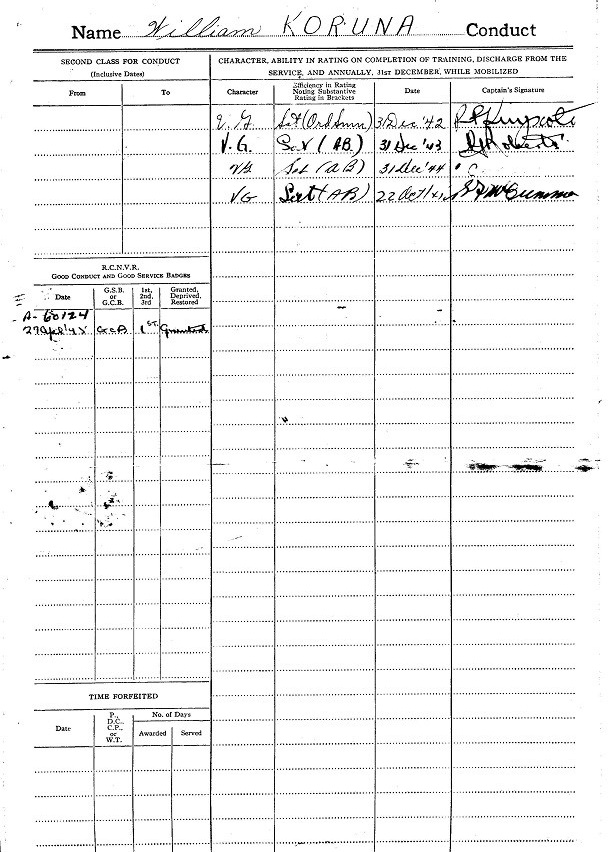 Name William KORUNA Conduct
SECOND CLASS FOR CONDUCT
(Inclusive Dates)
From To
CHARACTER, ABILITY IN RATING ON COMPLETION OF TRAINING, DISCHARGE FROM THE
SERVICE, AND ANNUALLY, 31ST DECEMBER, WHILE MOBILIZED
Character Efficiency in Rating Noting Substantive Rating in Brackets Date Captain's Signature
V.G. Sat (Ord Smn) 31 Dec '42
V.G. Sat (AB) 31 Dec '43
VG Sat (AB) 31 Dec '44
VG Sat (AB) 22 Oct
R.C.N.V.R.
GOOD CONDUCT AND GOOD SERVICE BADGES
Date G.S.B. or G.C.B. 1st, 2nd, 3rd Granted, Deprived, Restored
A-60124
27 Apl '45 GCB 1ST Granted
TIME FORFEITED
Date P., D.C., C.P., or W.T. No. of Days
Awarded Served